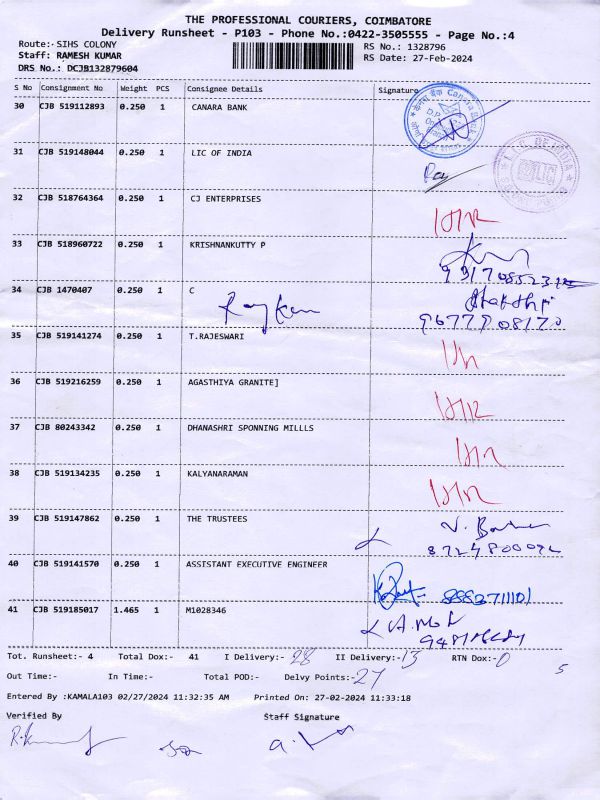 THE PROFESSIONAL COURIERS, COIMBATORE
Delivery Runsheet - P103 - Phone No.:0422-3505555 - Page No.:4
Route:- SIHS COLONY
RS No.: 1328796
Staff: RAMESH KUMAR
RS Date: 27-Feb-2024
DRS No.: DCJB132879604
S No Consignment No Weight PCS Consignee Details Signature
30 CJB 519112893 0.250 1 CANARA BANK
31 CJB 519148044 0.250 1 LIC OF INDIA
32 CJB 518764364 0.250 1 CJ ENTERPRISES
33 CJB 518960722 0.250 1 KRISHNANKUTTY P
34 CJB 1470407 0.250 1 C
35 CJB 519141274 0.250 1 T.RAJESWARI
36 CJB 519216259 0.250 1 AGASTHIYA GRANITE]
37 CJB 80243342 0.250 1 DHANASHRI SPONNING MILLLS
38 CJB 519134235 0.250 1 KALYANARAMAN
39 CJB 519147862 0.250 1 THE TRUSTEES
40 CJB 519141570 0.250 1 ASSISTANT EXECUTIVE ENGINEER
41 CJB 519185017 1.465 1 M1028346
Tot. Runsheet:- 4 Total Dox:- 41 I Delivery:- 28 II Delivery:- 13 RTN Dox:- 0
5
Out Time:- In Time:- Total POD:- Delvy Points:- 27
Entered By :KAMALA103 02/27/2024 11:32:35 AM Printed On: 27-02-2024 11:33:18
Verified By Staff Signature